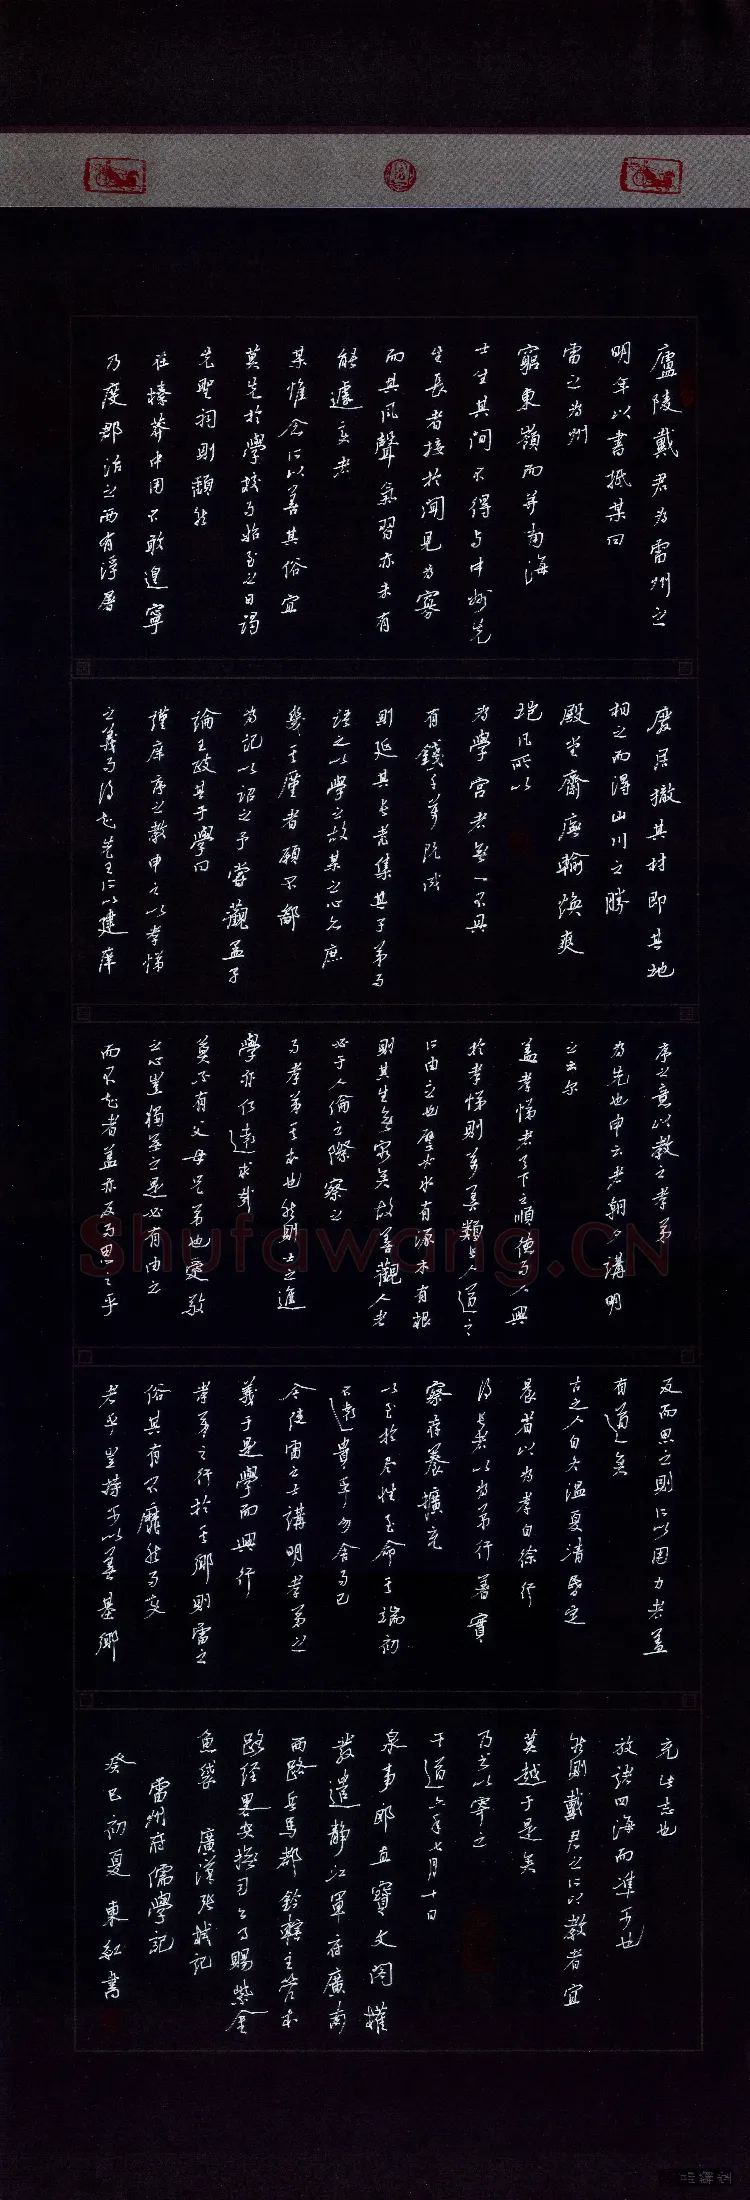 廬陵戴君為雷州之
明年以書抵某曰
雷之為州
窮東嶺而並南海
士生其间不得与中州先
生長者接於闻見為寡
而其风聲氣習亦未有
能遽变者
某惟念所以善其俗宜
莫先於學校而始至之日谒
先聖祠则頽然
在榛莽中用不敢遑寧
乃度郡治之西有浮屠
廢居撤其材即其地
相之而得山川之勝
殿堂齋廡輪焕爽
垲凡所以
為學宫者無一不具
有錢千萬既成
则延其長老集其子弟而
语之以學之故某之心尔庶
幾于厪者願不鄙
为記以诏之予嘗觀孟子
論王政其于學曰
謹庠序之教申之以孝悌
之義而得先王所以建庠
序之意以教之孝弟
為先也申云者朝夕講明
之云尔
盖孝悌者天下之順德而人興
於孝悌则萬善類長人道之
所由立也譬如水有源木有根
则其生無窮矣故善觀人者
必于人倫之際察之
而孝弟其本也然则士之進
學亦何遠求哉
莫不有父母兄弟也愛敬
之心豈獨無之是必有由之
而不知者盖亦反而思之乎
反而思之则所以用力者盖
有道矣
古之人自冬温夏清昏定
晨省以为孝自徐行
後長者以为弟行著實
察存養擴充
以至於尽性至命其端初
不遠貴乎勿舍而已
今使雷之士講明孝弟之
義于是學而興行
孝弟之行於其鄉则雷之
俗其有不靡然而变
者乎豈特可以善其鄉
充此志也
放諸四海而準可也
然则戴君之所以教者宜
莫越于是矣
乃书以寄之
干道六年七月十日
泉事郎直寶文阁權
發遣静江軍府廣南
西路兵馬都鈐轄主管本
路经畧安撫司公事賜紫金
魚袋 廣漢张栻記
雷州府儒學記
癸巳初夏東红書
Shufawang.CN